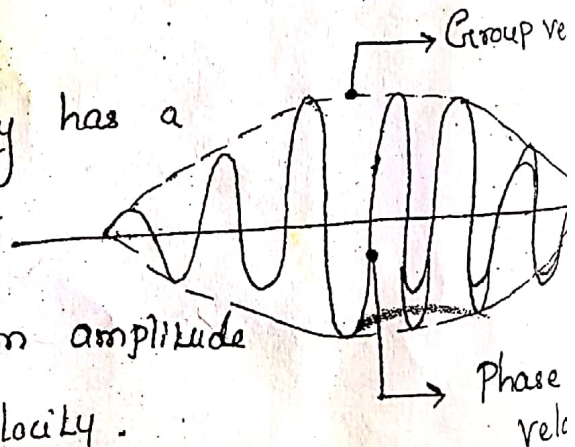 Group ve
y has a
n amplitude
locity.
Phase
velo